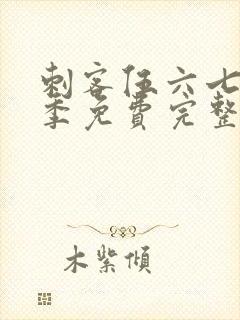 刺客伍六七
季免费完整
木紫倾